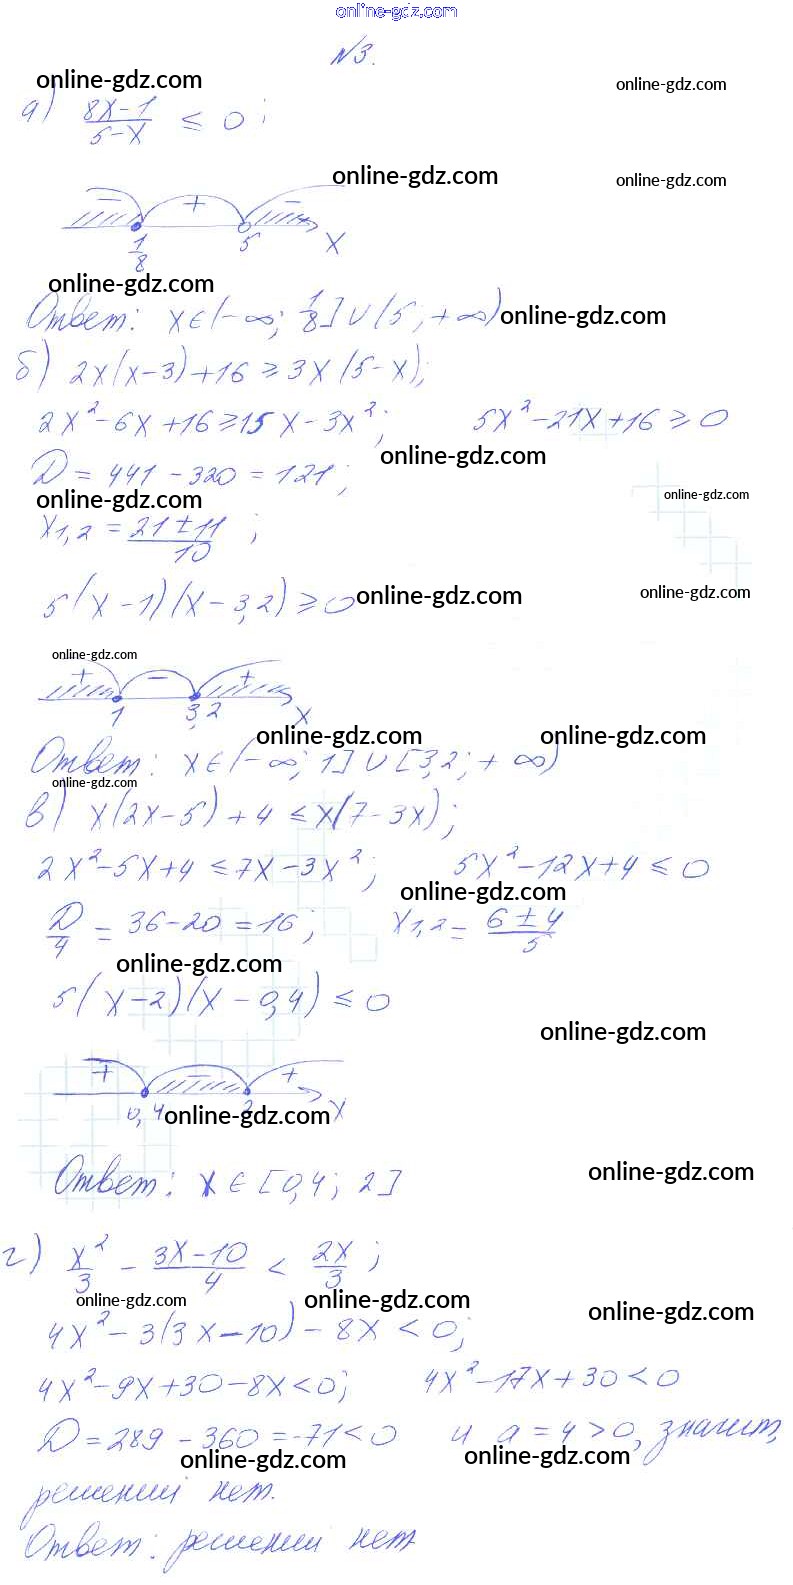 online-gdz.com
N3.
online-gdz.com online-gdz.com
а) (8x-1)/(5-x) ≤ 0;
online-gdz.com online-gdz.com
− + −
1/8 5 x
online-gdz.com
Ответ: x∈(-∞; 1/8]∪(5;+∞) online-gdz.com
б) 2x(x-3)+16≥3x(5-x);
2x²-6x+16≥15x-3x²; 5x²-21x+16≥0
online-gdz.com
D=441-320=121;
online-gdz.com online-gdz.com
x1,2 = (21±11)/10;
5(x-1)(x-3,2)≥0 online-gdz.com online-gdz.com
online-gdz.com
+ − +
1 3,2 x
online-gdz.com online-gdz.com
Ответ: x∈(-∞;1]∪[3,2;+∞)
online-gdz.com
в) x(2x-5)+4≤x(7-3x);
2x²-5x+4≤7x-3x²; 5x²-12x+4≤0
online-gdz.com
D/4=36-20=16; x1,2=(6±4)/5
online-gdz.com
5(x-2)(x-0,4)≤0
online-gdz.com
+ − +
0,4 online-gdz.com 2 x
online-gdz.com
Ответ: x∈[0,4; 2]
г) x²/3 - (3x-10)/4 < 2x/3;
online-gdz.com online-gdz.com online-gdz.com
4x²-3(3x-10)-8x<0;
4x²-9x+30-8x<0; 4x²-17x+30<0
D=289-360=-71<0 и a=4>0, значит,
online-gdz.com online-gdz.com
решений нет.
Ответ: решений нет